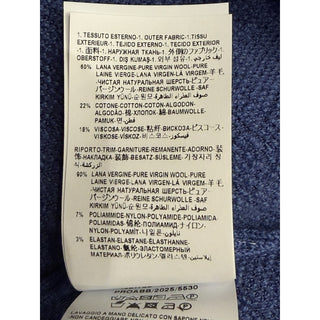 1. TESSUTO ESTERNO-1. OUTER FABRIC-1. TISSU
EXTERIEUR-1. TEJIDO EXTERIOR-1. TECIDO EXTERIOR
-1. 面料-1. НАРУЖНАЯ ТКАНЬ-1.
OBERSTOFF-1. DIŞ KUMAŞ-1.
60% LANA VERGINE-PURE VIRGIN WOOL-PURE
LAINE VIERGE-LANA VIRGEN-LÃ VIRGEM-羊毛
-ЧИСТАЯ НАТУРАЛЬНАЯ ШЕРСТЬ-ピュア-
バージンウール-REINE SCHURWOLLE-SAF
KIRKIM YÜNÜ-순원모-صوف العذراء الطاهرة
22% COTONE-COTTON-COTON-ALGODON-
ALGODÃO-棉-ХЛОПОК-綿-BAUMWOLLE-
PAMUK-면-قطن
18% VISCOSA-VISCOSE-粘纤-ВИСКОЗА-ビスコース-
VISKOSE-
RIPORTO-TRIM-GARNITURE-REMANENTE-ADORNO-装
饰-НАКЛАДКА-装飾-BESATZ-SÜSLEME-
90% LANA VERGINE-PURE VIRGIN WOOL-PURE
LAINE VIERGE-LANA VIRGEN-LÃ VIRGEM-羊毛
-ЧИСТАЯ НАТУРАЛЬНАЯ ШЕРСТЬ-ピュア-
バージンウール-REINE SCHURWOLLE-SAF
KIRKIM YÜNÜ-순원모-صوف العذراء الطاهرة
7% POLIAMMIDE-NYLON-POLYAMIDE-POLIAMIDA
-POLIAMIDA-锦纶-ПОЛИАМИД-ナイロン-
NYLON-POLYAMİT-나일론-نايلون
3% ELASTAN-ELASTANE-ÉLASTHANNE-
ELASTANO-氨纶-ЭЛАСТОМЕРНЫЙ
МАТЕРИАЛ-ポリウレタン-
PROABB/2025/5530
LAVAGGIO A MANO DELICATO CON SAPONE